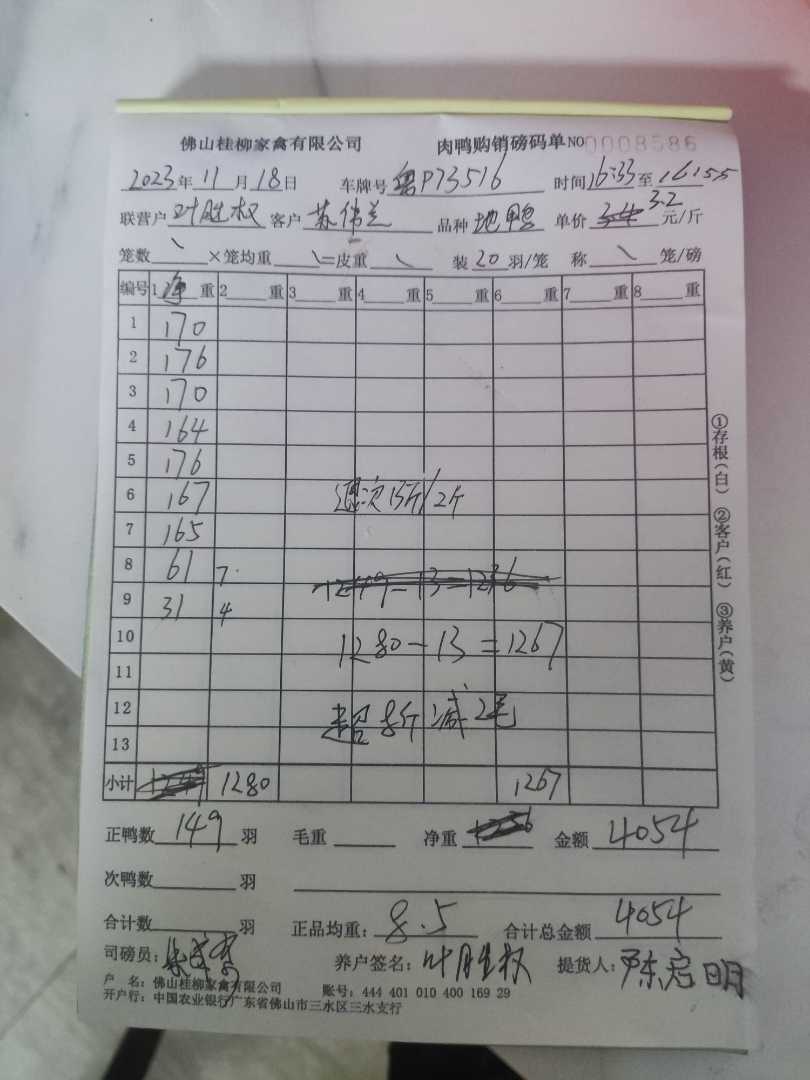 佛山桂柳家禽有限公司 肉鸭购销磅码单 NO 0008586
2023年 11月 18日 车牌号 粤P73516 时间 16:33 至 16:55
联营户 叶胜权 客户 苏伟兰 品种 地鸭 单价 3.2 元/斤
笼数 \ ×笼均重 \ =皮重 \ 装 20 羽/笼 称 \ 笼/磅
编号 1 净 重 2 重 3 重 4 重 5 重 6 重 7 重 8 重
1 170
2 176
3 170
4 164
5 176
6 167 退次13斤/2斤
7 165
8 61 7
9 31 4 1249-13=1236
10 1280-13=1267
11
12 超8斤减2毛
13
小计 1249 1280 1267
正鸭数 149 羽 毛重 净重 1236 金额 4054
次鸭数 羽
合计数 羽 正品均重: 8.5 合计总金额 4054
司磅员: 养户签名: 叶胜权 提货人: 陈启明
户 名: 佛山桂柳家禽有限公司 账号: 444 401 010 400 169 29
开户行: 中国农业银行广东省佛山市三水区三水支行
①存根(白) ②客户(红) ③养户(黄)